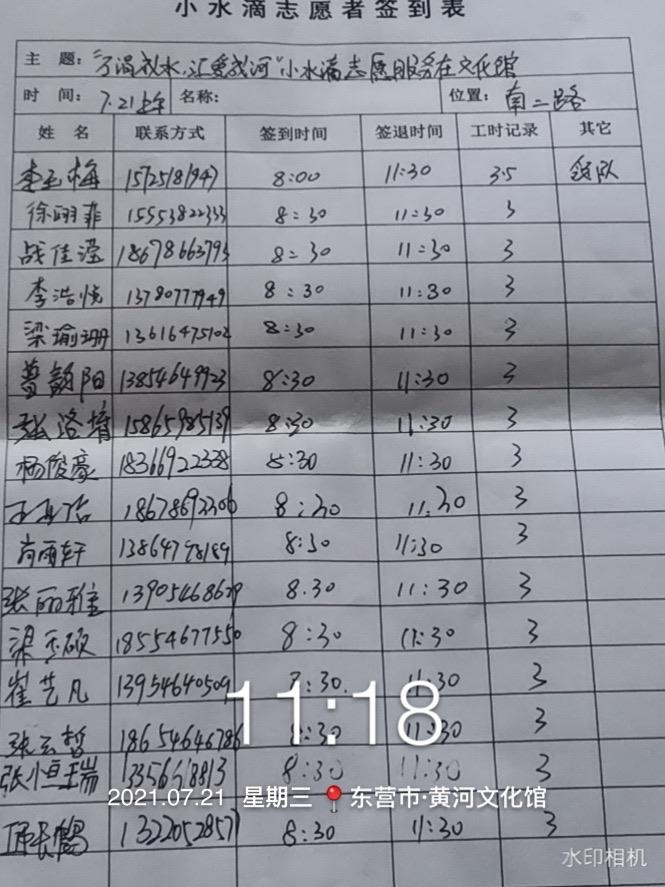 小水滴志愿者签到表
主 题: "节渴救水,汇爱成河"小水滴志愿服务在文化馆
时 间: 7.21上午 名称: 位置: 南二路
姓 名 联系方式 签到时间 签退时间 工时记录 其它
李玉梅 15725181947 8:00 11:30 3.5 领队
徐翊菲 15553822333 8:30 11:30 3
战佳滢 18678663793 8:30 11:30 3
李浩悦 13780777949 8:30 11:30 3
梁瑜珊 13616475102 8:30 11:30 3
曹韵阳 13854649923 8:30 11:30 3
15865985139 8:30 11:30 3
杨俊豪 18366922338 8:30 11:30 3
18678692306 8:30 11:30 3
尚雨轩 13864798189 8:30 11:30 3
张丽雅 13905468629 8.30 11:30 3
梁玉硕 18554677550 8:30 11:30 3
崔艺凡 13954640509 8:30 11:30 3
11:18
张云哲 18654646786 8:30 11:30 3
张恒瑞 8:30 11:30 3
2021.07.21 星期三 东营市·黄河文化馆
8:30 11:30 3
水印相机